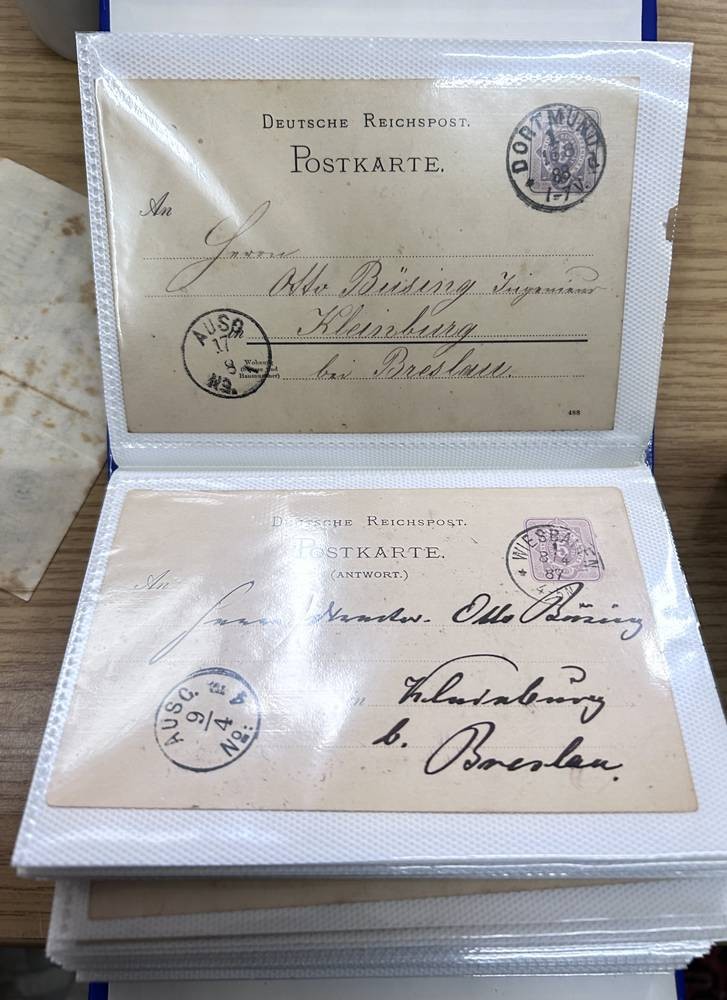 DEUTSCHE REICHSPOST.
POSTKARTE.
DORTMUND
1
16 8
86
1-7V.
An
Herrn
Otto Büsing Ingenieur
Kleinburg
bei Breslau.
AUSG.
17
8
in
Wohnung
(Straße und
Hausnummer)
488
DEUTSCHE REICHSPOST.
POSTKARTE.
(ANTWORT.)
WIESBADEN
1
8/4
87
4-5N
An
Herrn Director Otto Büsing
in Kleinburg
b. Breslau.
AUSG.
9/4
No: